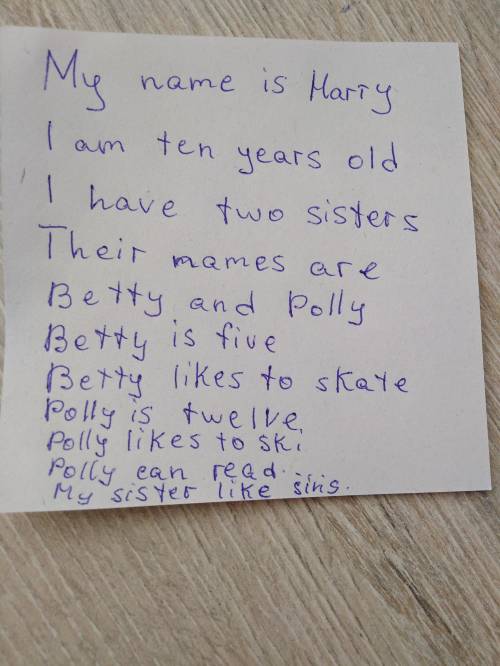 My name is Harry
I am ten years old
I have two sisters
Their mames are
Betty and Polly
Betty is five
Betty likes to skate
Polly is twelve.
Polly likes to ski
Polly can read...
My sister like